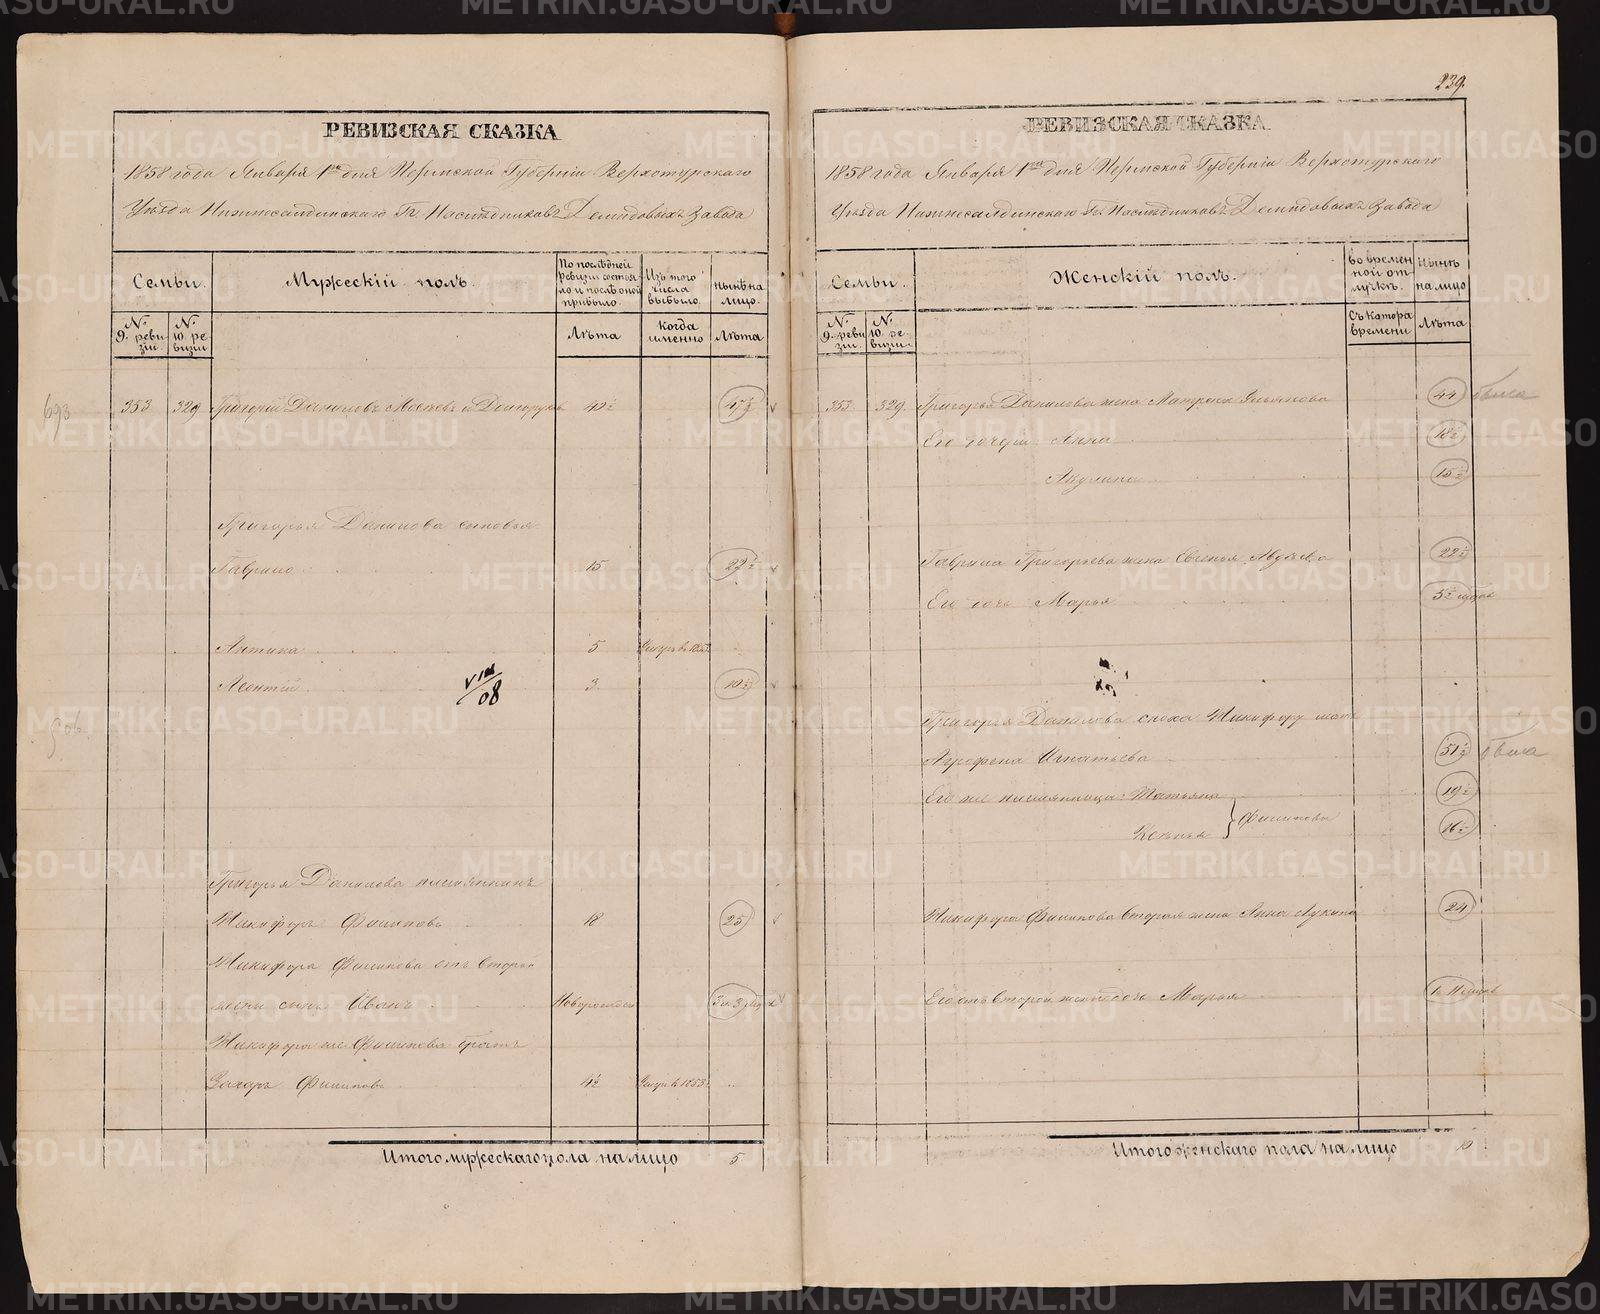 239.
РЕВИЗСКАЯ СКАЗКА
1858 года Января 1го дня Пермской Губернiи Верхотурскаго
Уѣзда Нижнесалдинскаго Гг. Наслѣдниковъ Демидовыхъ Завода
Семьи.
Мужескiй полъ.
По послѣдней ревизiи состояло и послѣ оной прибыло.
Изъ того числа выбыло.
Нынѣ на лицо.
№ 9. ревизiи.
№ 10. ревизiи
Лѣта
Когда именно
Лѣта
693
353. 329 Григорiй Даниловъ 40½ 47½
Григорья Данилова сыновья
Гаврило 15 22½
Антипа 5
Леонтiй 3 10½
VIII/08
906
Григорья Данилова племянникъ
Никифоръ Филиповъ 18 25
Никифора Филипова отъ второй
жены сынъ Иванъ Новорожденъ
Никифора же Филипова братъ
Захаръ Филиповъ 4½ 1853
Итого мужескаго пола на лицо 5
РЕВИЗСКАЯ СКАЗКА
1858 года Января 1го дня Пермской Губернiи Верхотурскаго
Уѣзда Нижнесалдинскаго Гг. Наслѣдниковъ Демидовыхъ Завода
Семьи.
Женскiй полъ.
Во временной отлучкѣ.
Нынѣ на лицо
№ 9. ревизiи.
№ 10. ревизiи.
Съ котора времени
Лѣта
353. 329. Григорья Данилова жена Матрена 44
Его дочери Анна 18½
Акулина 15½
Гаврила Григорьева жена Евгенья 22½
Его дочь Марья
Григорья Данилова сноха Никифору мать
Агрофена Игнатьева 51½
Его же племянницы: Татьяна 19½
Ксенья } Филиповы 16½
Никифора Филипова вторая жена Анна Лукина 24
Его отъ второй жены дочь Марья
Итого женскаго пола на лицо 10
METRIKI.GASO-URAL.RU